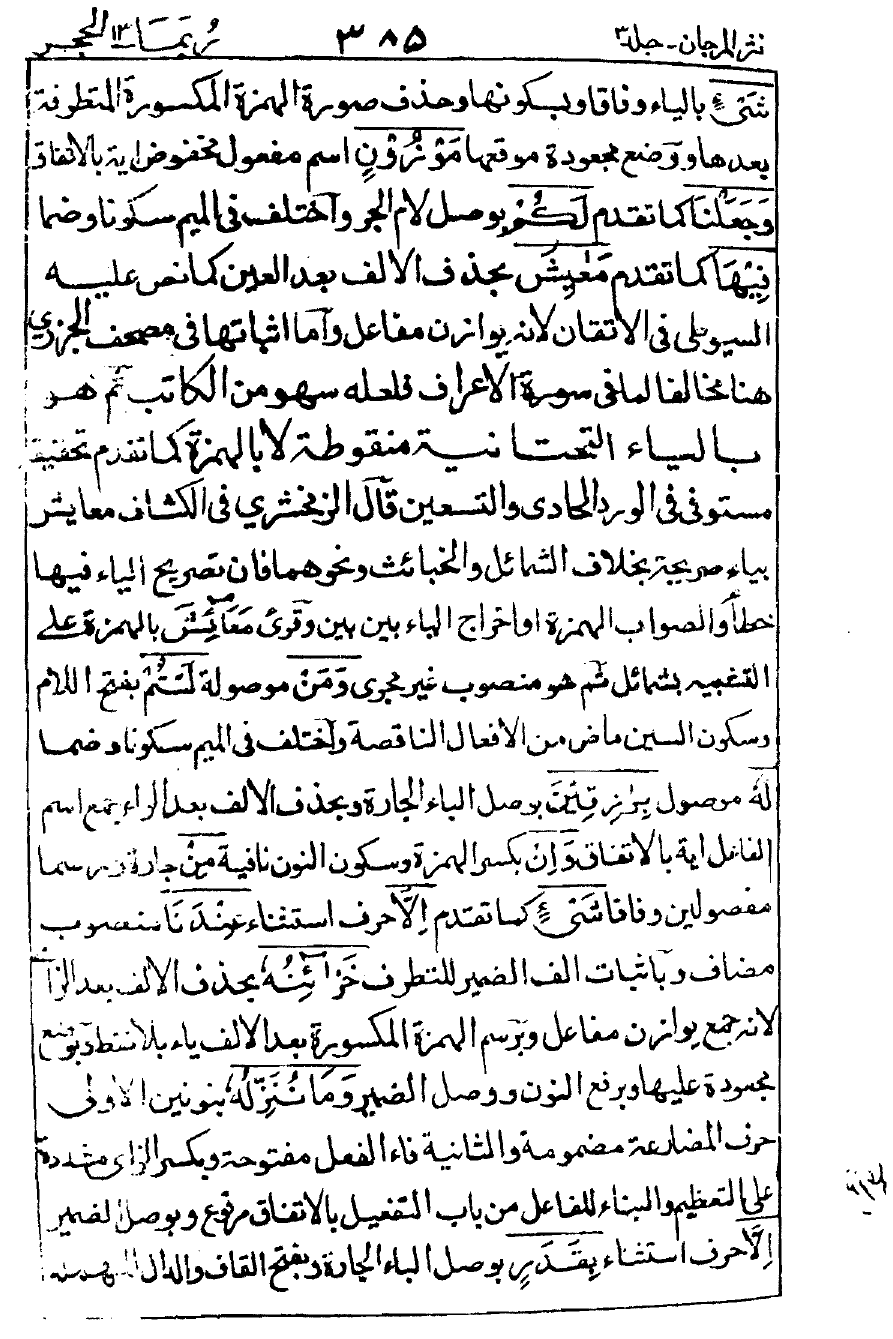 نثر المرجان - جلد ٣ ٣٨٥ ربما ١٣ الحجر
شَیْءٍ بالياء وفاقا وبسكونها وحذف صورة الهمزة المكسورة المتطرفة
بعدها ووضع مجعودة موقعها مَوْزُوْنٍ اسم مفعول مخفوض اية بالاتفاق
وَجَعَلْنَا كما تقدم لَكُمْ بوصل لام الجر واختلف فى الميم سكونا وضما
فِيْهَا كما تقدم مَعٰيِشَ بحذف الالف بعد العين كما نص عليه
السيوطى فى الاتقان لانه يوازن مفاعل وآما اثباتها فى مصحف الجزري
هنا مخالفا لما فى سورة الاعراف فلعله سهو من الكاتب ثم هو
بالياء التحتانية منقوطة لا بالهمزة كما تقدم تحقيقه
مستوفى فى الورد الحادى والتسعين قال الزمخشري فى الكشاف معايش
بياء صريحة بخلاف الشمائل والخبائث ونحوهما فان تصريح الياء فيها
خطأ والصواب الهمزة او اخراج الياء بين بين وقرئ مَعَائِشَ بالهمزة على
التشبيه بشمائل ثم هو منصوب غير مجرى وَمَنْ موصولة لَسْتُمْ بفتح اللام
وسكون السين ماض من الافعال الناقصة واختلف فى الميم سكونا وضما
لَهٗ موصول بِرٰزِقِيْنَ بوصل الباء الجارة وبحذف الالف بعد الراء جمع اسم
الفاعل اية بالاتفاق وَاِنْ بكسر الهمزة وسكون النون نافية مِنْ جارة رسما
مفصولين وفاقا شَیْءٍ كما تقدم اِلَّا حرف استثناء عِنْدَنَا منصوب
مضاف وباثبات الف الضمير للتطرف خَزَائِنُهٗ بحذف الالف بعد الزا
لانه جمع يوازن مفاعل وبرسم الهمزة المكسورة بعد الالف ياء بلا نقط وبوضع
مجعودة عليها وبرفع النون ووصل الضمير وَمَا نُنَزِّلُهٗ بنونين الاولى
حرف المضارعة مضمومة والثانية فاء الفعل مفتوحة وبكسر الزاى مشددة
على التعظيم والبناء للفاعل من باب التفعيل بالاتفاق مرفوع وبوصل الضمير
اِلَّا حرف استثناء بِقَدَرٍ بوصل الباء الجارة وبفتح القاف والدال المهملة